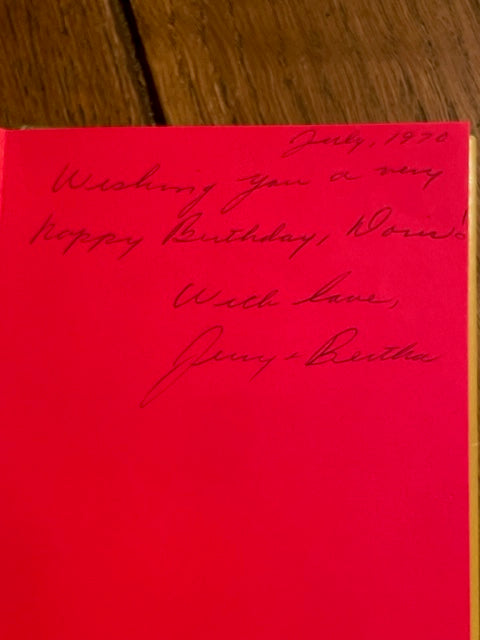 July, 1970
Wishing you a very
happy Birthday, Doris!
With love,
Jerry + Bertha